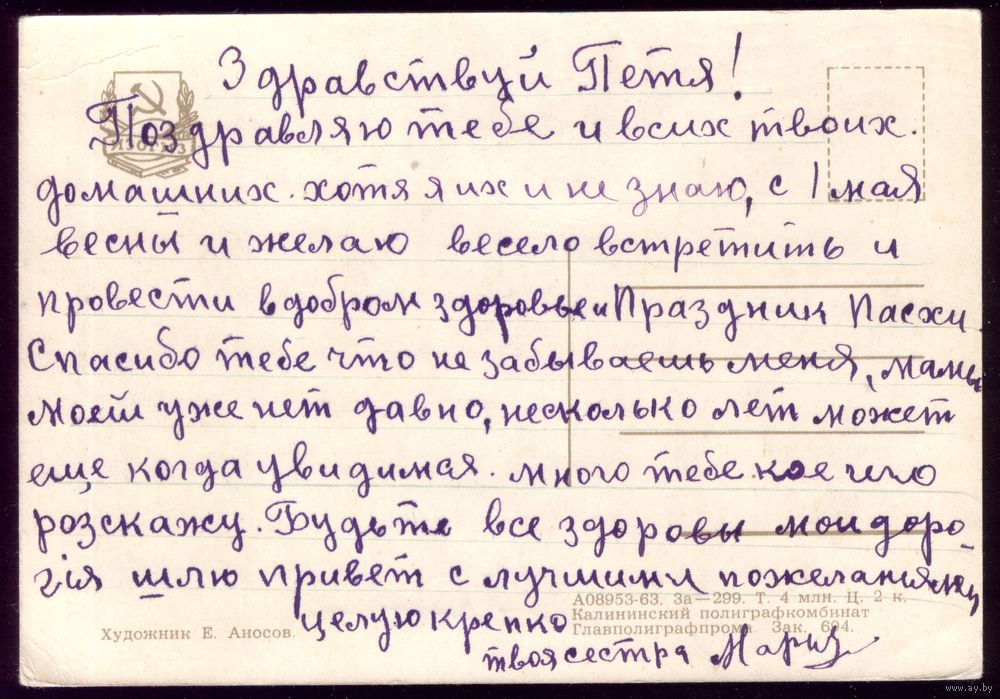 Здравствуй Петя!
Поздравляю тебе и всих твоих.
домашних. хотя я их и не знаю, с 1 мая
весны и желаю весело встретить и
провести в добром здоровье и Праздник Пасхи.
Спасибо тебе что не забываешь меня, мамы
моей уже нет давно, несколько лет может
еще когда увидимся. много тебе кое чего
розскажу. Будьте все здоровы мои доро-
гія шлю привет с лучшими пожеланиями
целую крепко
твоя сестра Мария
ИЗОГИЗ
Художник Е. Аносов.
А08953-63. За—299. Т. 4 млн. Ц. 2 к.
Калининский полиграфкомбинат
Главполиграфпрома. Зак. 694.
www.ay.by